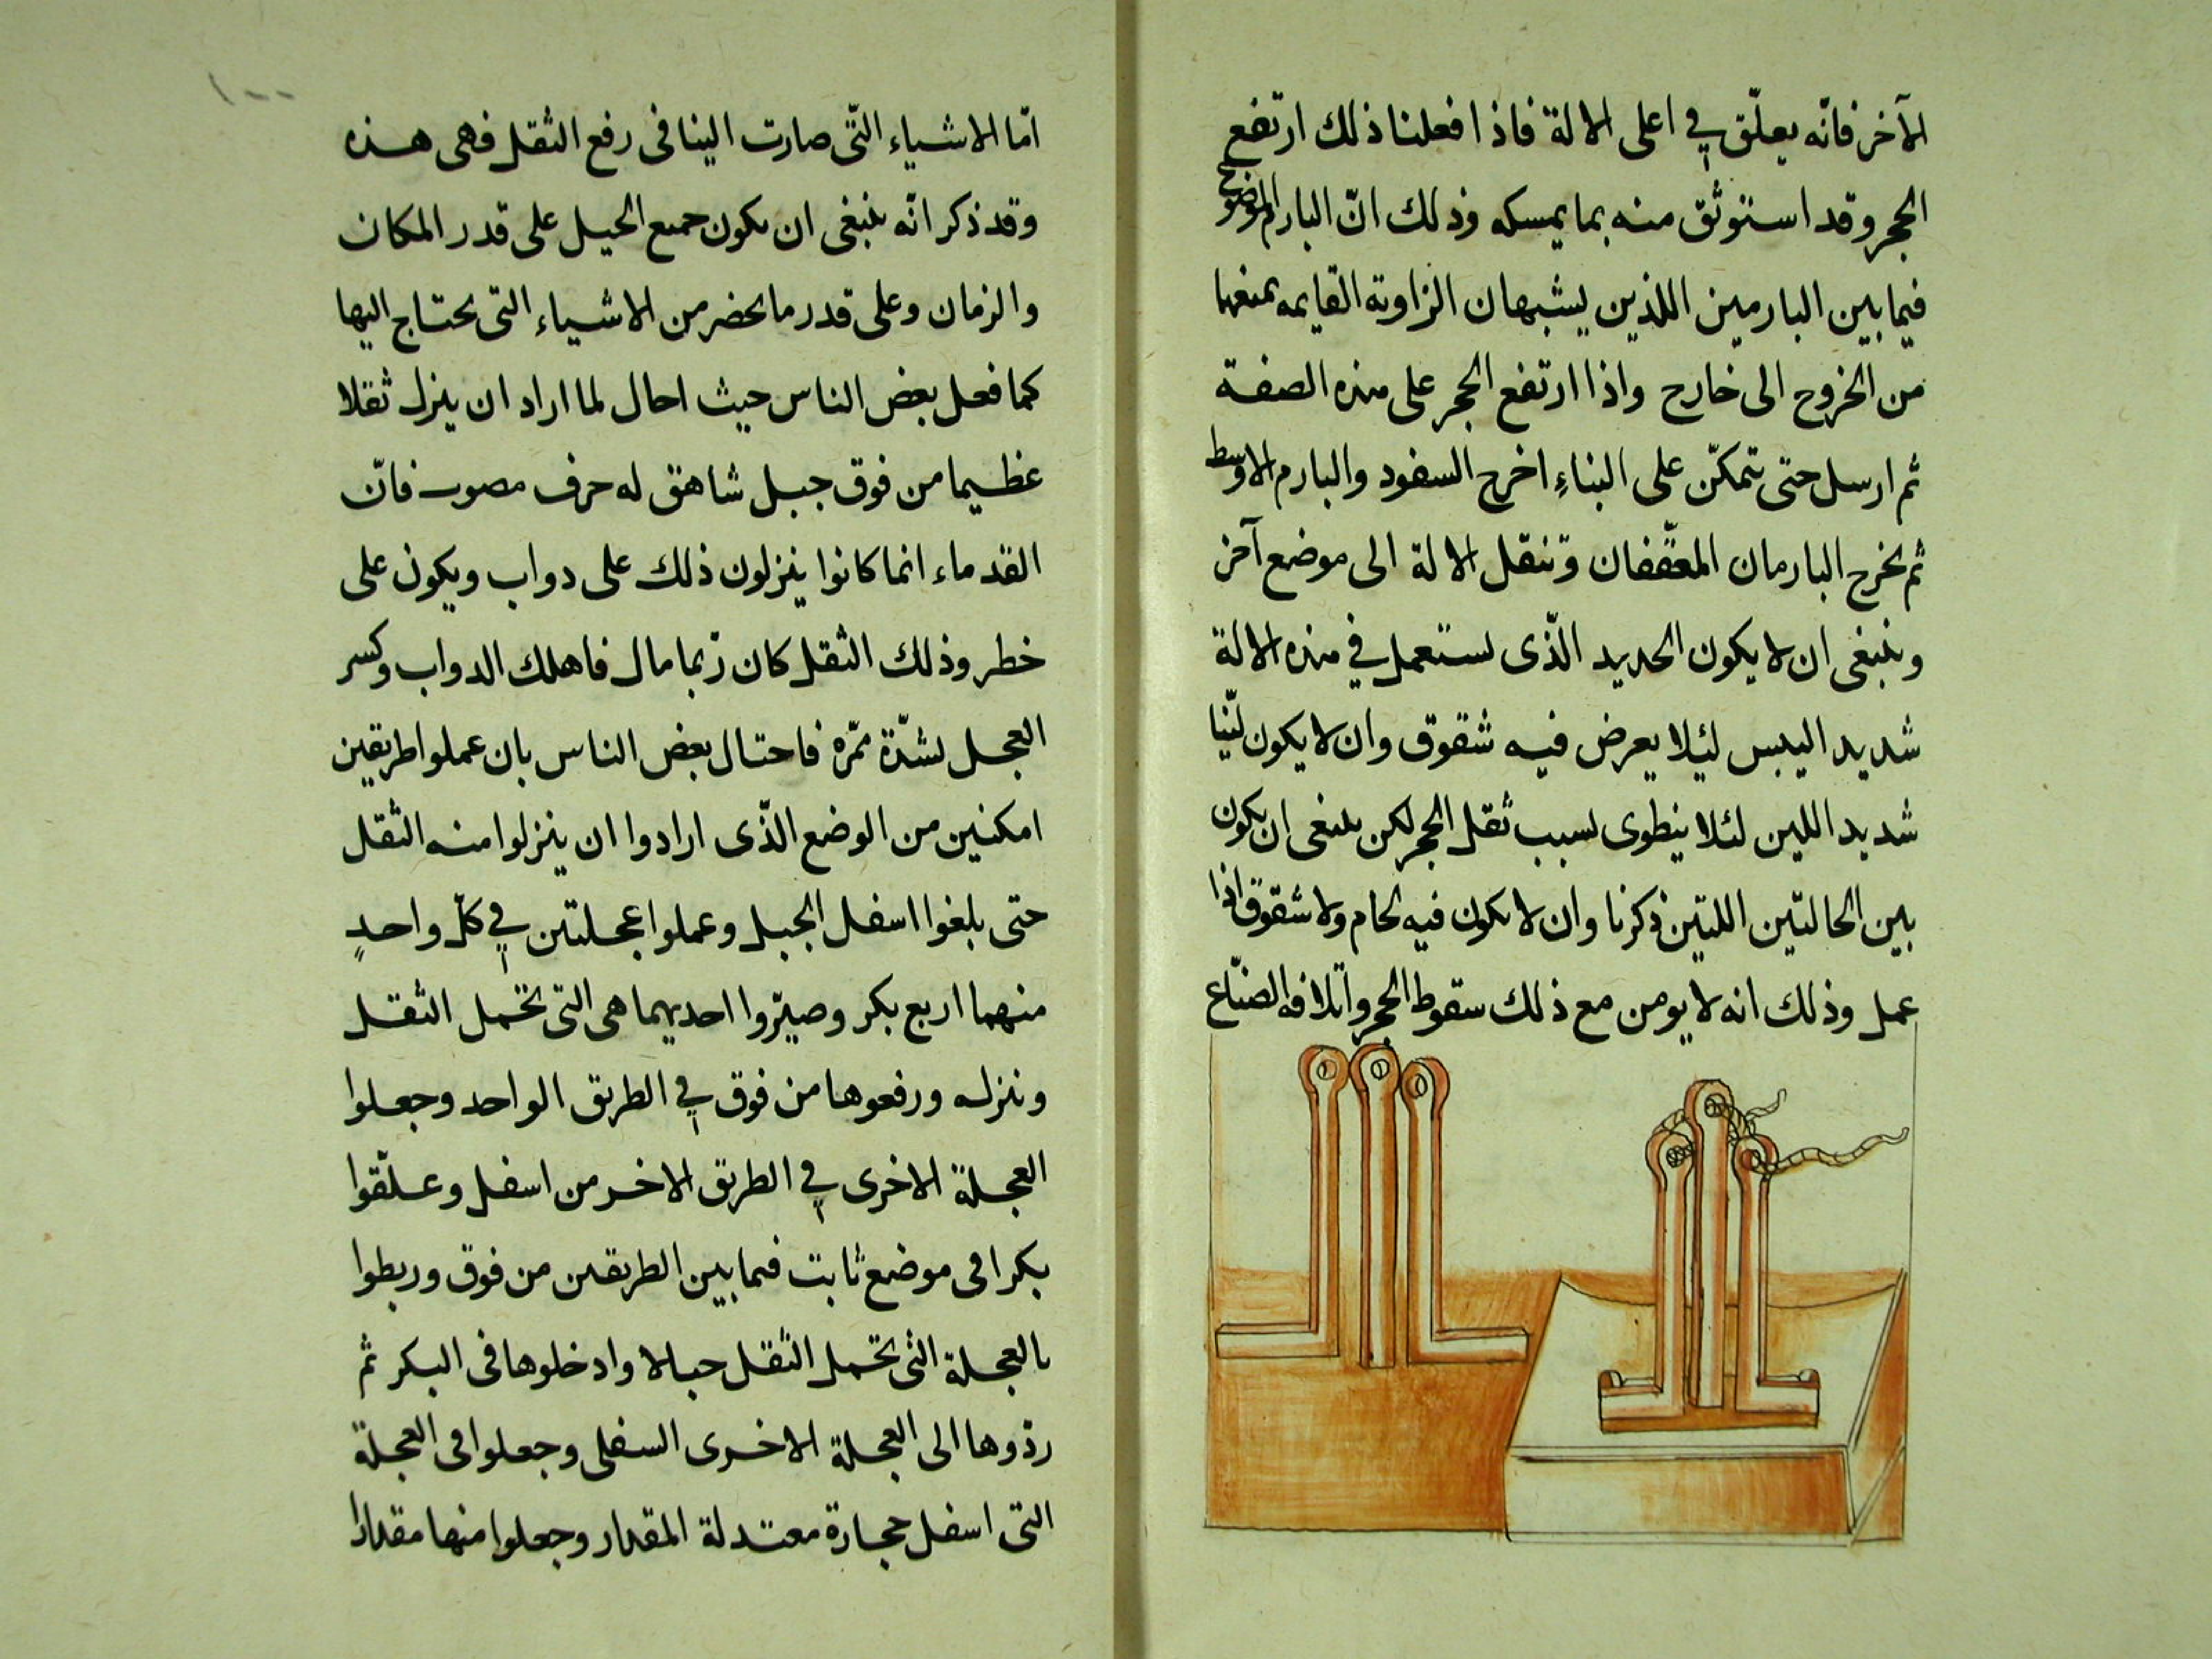 الآخر فانّه يعلّق في اعلى الالة فاذا فعلنا ذلك ارتفع
الحجر وقد استوثق منه بما يمسكه وذلك انّ البارم الموضوع
فيما بين البارمين اللذين يشبهان الزاوية القايمه يمنعها
من الخروج الى خارج واذا ارتفع الحجر على هذه الصفة
ثم ارسل حتى يتمكّن على البناءِ اخرج السفود والبارم الاوسط
ثم يخرج البارمان المعقّفان وتنقل الالة الى موضع آخر
وينبغى ان لا يكون الحديد الّذى يستعمل في هذه الالة
شديد اليبس لئلا يعرض فيه شقوق وان لا يكون ليّنا
شديد اللين لئلا ينطوى لسبب ثقل الحجر لكن ينبغى ان يكون
بين الحالتين اللتين ذكرنا وان لا يكون فيه لحام ولا شقوق اذا
عمل وذلك انه لا يومن مع ذلك سقوط الحجر واتلافه الصنّاع
١٠٠
امّا الاشياء التّى صارت الينا فى رفع الثقل فهى هذه
وقد ذكر انّه ينبغى ان يكون جميع الحيل على قدر المكان
والزمان وعلى قدر ما يحضر من الاشياء التى يحتاج اليها
كما فعل بعض الناس حيث احال لما اراد ان ينزل ثقلا
عظيما من فوق جبل شاهق له حرف مصوب فانّ
القدماء انما كانوا ينزلون ذلك على دواب ويكون على
خطر وذلك الثقل كان ربما مال فاهلك الدواب وكسر
العجل لشدّة ممّره فاحتال بعض الناس بان عملوا طريقين
امكنين من الوضع الّذى ارادوا ان ينزلوا منه الثقل
حتى بلغوا اسفل الجبل وعملوا عجلتين في كلّ واحدٍ
منهما اربع بكر وصيّروا احديهما هى التى تحمل الثقل
وينزله ورفعوها من فوق في الطريق الواحد وجعلوا
العجلة الاخرى في الطريق الاخر من اسفل وعلّقوا
بكرا فى موضع ثابت فيما بين الطريقين من فوق وربطوا
بالعجلة التى تحمل الثقل حبالا وادخلوها فى البكر ثم
ردّوها الى العجلة الاخرى السفلى وجعلوا فى العجلة
التى اسفل حجارة معتدلة المقدار وجعلوا منها مقدارا